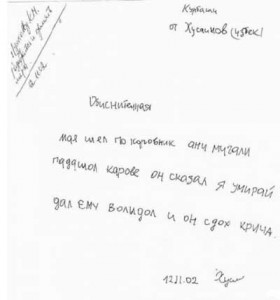 Курбаши
от Хусаинов (узбек)
Обиснитенная
мая шел по коровник ани мичали
паддашол карове он сказал я умирай
дал ему волидол и он сдох крича.
12.11.02 Хус